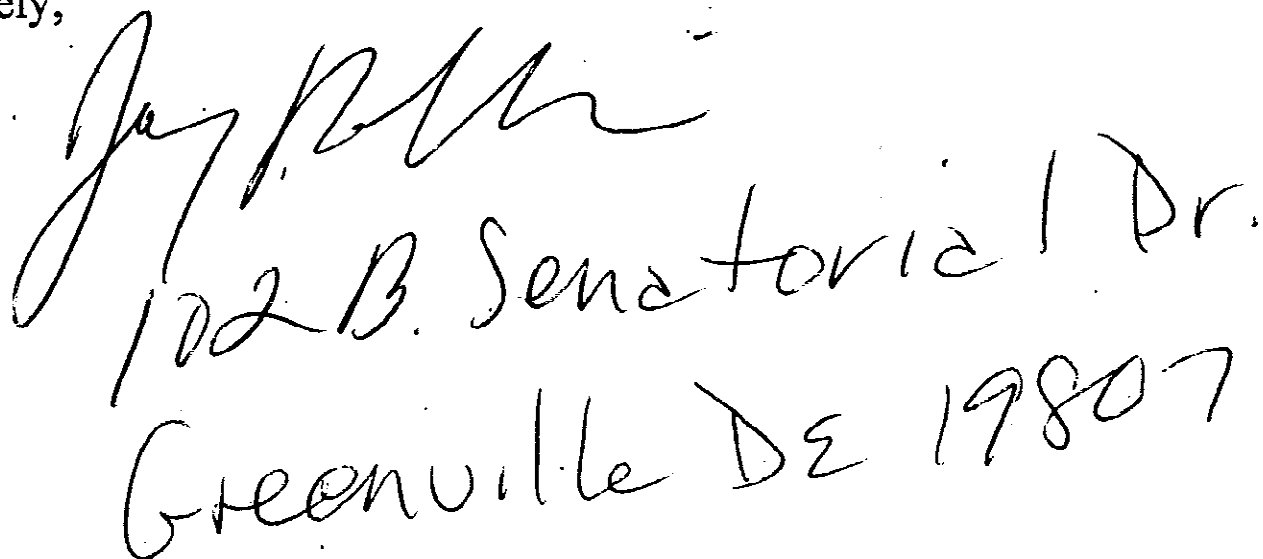 ely,
Jay
102 B. Senatorial Dr.
Greenville DE 19807